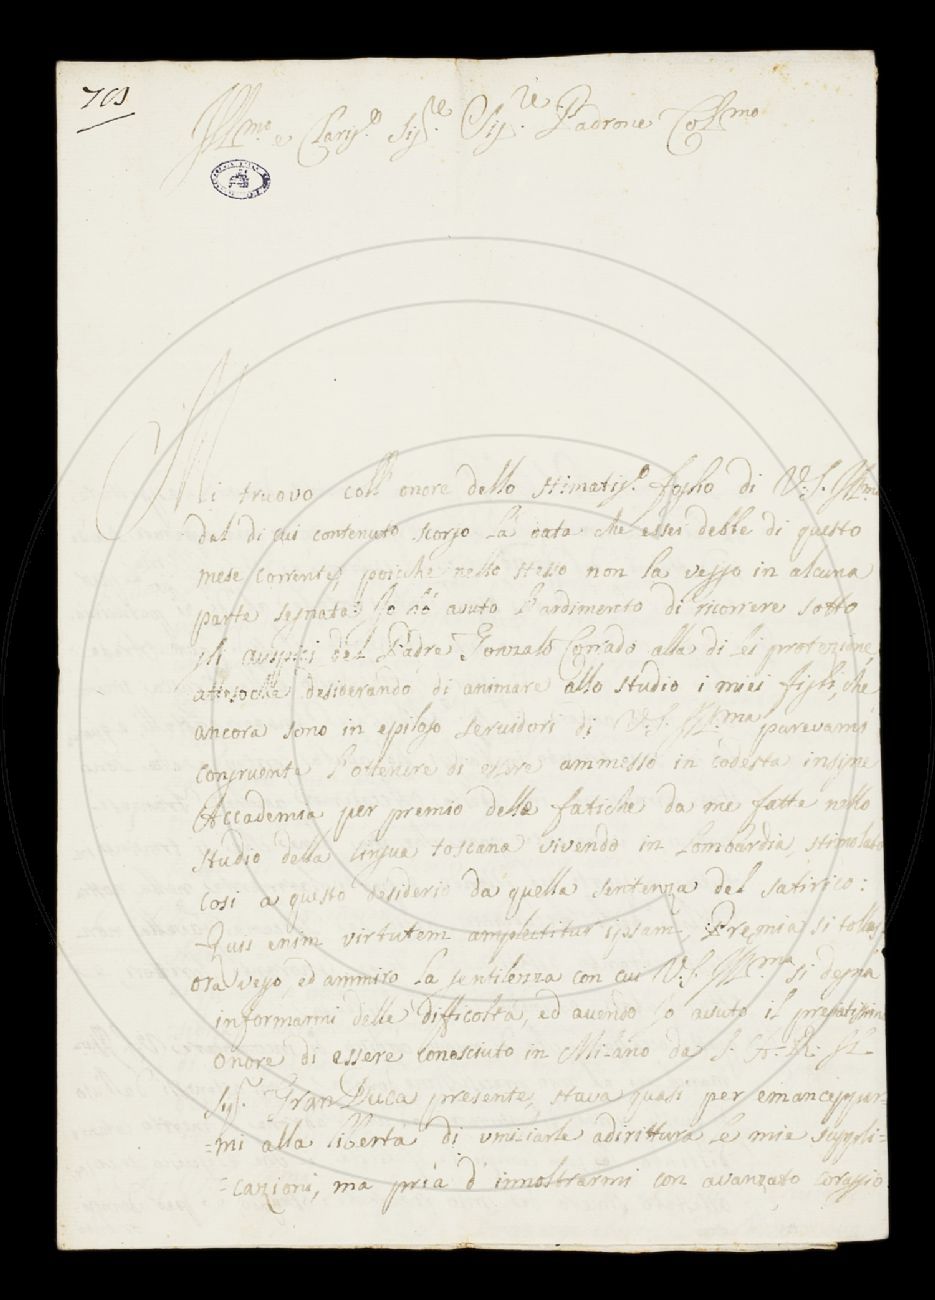 701
Ill.mo e Claris.o Sig.re Sig.re Padrone Coll.mo
Mi truovo coll' onore dello stimatis.o foglio di V: S. Ill.ma
dal di cui contenuto scorgo la data che esser debbe di questo
mese corrente, poiche nello stesso non la veggo in alcuna
parte segnata. Io hò avuto l'ardimento di ricorrere sotto
gli auspizj del Padre Gonzalo Corrado alla di lei protezione,
attesoche desiderando di animare allo studio i miei figli, che
ancora sono in epilogo servidori di V: S. Ill.ma parevami
congruente l'ottenire di essere ammesso in codesta insigne
Accademia per premio delle fatiche da me fatte nello
studio della lingua toscana vivendo in Lombardia, stimolato
cosi a questo desiderio da quella sentenza del satirico:
Quis enim virtutem amplectitur ipsam, Premia si tollas,
ora veggo, ed ammiro la gentilezza con cui V: S. Ill.ma si degna
informarmi delle difficoltà, ed avendo Io avuto il pregiatissimo
onore di essere conosciuto in Milano da S: A: R: Il
Sig.r Gran Duca presente, stava quasi per emanceppar=
=mi alla libertà di umiliarle adirittura le mie suppli=
=cazioni, ma prià d'innoltrarmi con avanzato coraggio